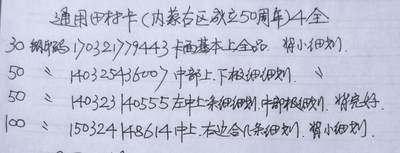 通用田村卡(内蒙古区成立50周年)4全
30 编码170321779443卡面基本上全品.背小细划.
50 〃 140325436007中部上.下极细细划. 〃
50 〃 140323140555左中上条细细划.中部极细划.背完好.
100 〃 150324148614中上.右边合几条细划.背小细划.